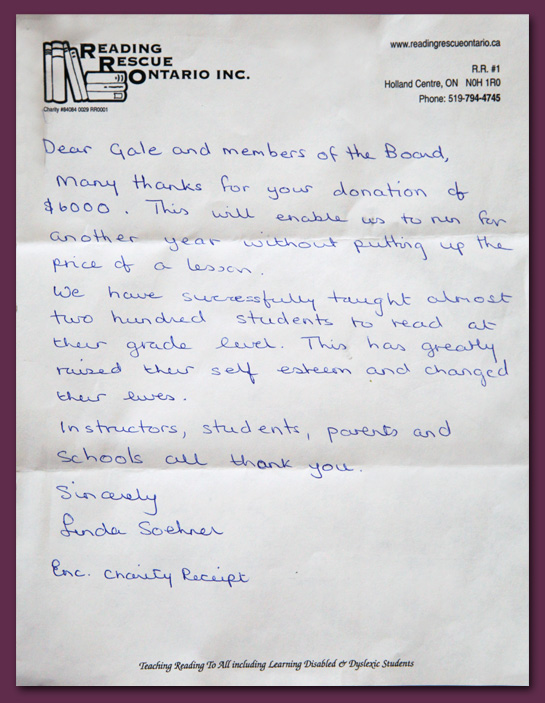 READING
RESCUE
ONTARIO INC.
Charity #84084 0029 RR0001
www.readingrescueontario.ca
R.R. #1
Holland Centre, ON N0H 1R0
Phone: 519-794-4745
Dear Gale and members of the Board,
Many thanks for your donation of
$6000. This will enable us to run for
another year without putting up the
price of a lesson.
We have successfully taught almost
two hundred students to read at
their grade level. This has greatly
raised their self esteem and changed
their lives.
Instructors, students, parents and
schools all thank you.
Sincerely
Linda Soehner
Enc. Charity Receipt
Teaching Reading To All including Learning Disabled & Dyslexic Students